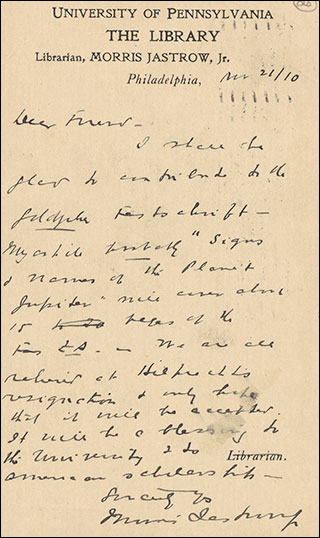 UNIVERSITY OF PENNSYLVANIA
THE LIBRARY
Librarian, MORRIS JASTROW, Jr.
Philadelphia, Nov 21/10
Dear Friend -
I shall be
glad to contribute to the
Goldziher Festschrift -
My article probably "Signs
& Names of the Planet
Jupiter" will cover about
15 pages of the
We are all
relieved at Hilprecht's
resignation & only hope
that it will be accepted.
It will be a blessing to
the University & to Librarian.
American scholarship -
Sincerely Yrs
Morris Jastrow Jr